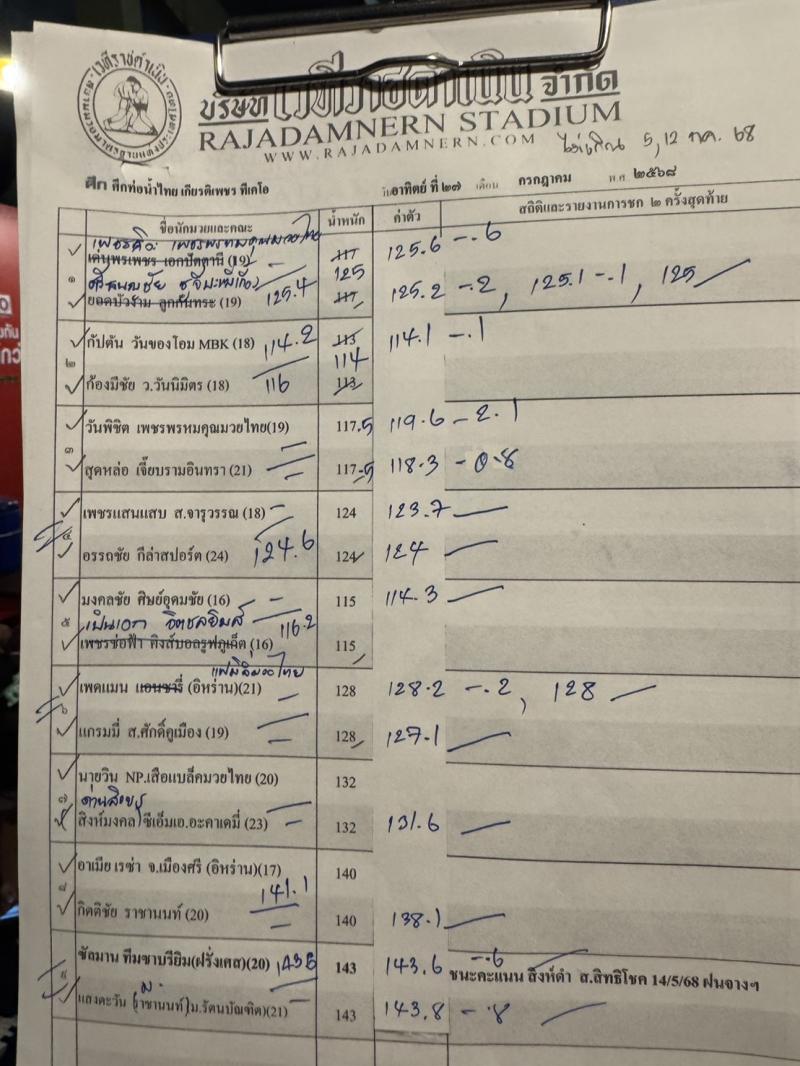 เวทีราชดำเนิน
บริษัท เวทีราชดำเนิน จำกัด
RAJADAMNERN STADIUM
WWW.RAJADAMNERN.COM
5, 12 กค. 68
ศึก ศึกท่อน้ำไทย เกียรติเพชร ทีเคโอ วันอาทิตย์ ที่ ๒๗ เดือน กรกฎาคม พ.ศ. ๒๕๖๘
ชื่อนักมวยและคณะ น้ำหนัก ค่าตัว สถิติและรายงานการชก ๒ ครั้งสุดท้าย
เพชรพรหมคุณมวยไทย
๑ เด่นพรเพชร เอกปัตตานี (19) 117 125.6 -.6
125
125.4
ยอดบัวงาม ลูกกันทระ (19) 117 125.2 -.2, 125.1 -.1, 125
๒ กัปตัน วันของโอม MBK (18) 114.2 113 114.1 -.1
114
ก้องมีชัย ว.วันนิมิตร (18) 116 113
๓ วันพิชิต เพชรพรหมคุณมวยไทย(19) 117.5 119.6 - 2.1
สุดหล่อ เจี๊ยบรามอินทรา (21) 117.5 118.3 - 0.8
๔ เพชรแสนแสบ ส.จารุวรรณ (18) 124 123.7
อรรถชัย กีล่าสปอร์ต (24) 124.6 124 124
๕ มงคลชัย ศิษย์อุดมชัย (16) 115 114.3
เป็นเอก จิตชลยิมส์ 116.2
เพชรช่อฟ้า คิงส์บอลรูฟภูเก็ต (16) 115
แฟมิลี่มวยไทย
๖ เพดแมน แอนซารี่ (อิหร่าน)(21) 128 128.2 -.2, 128
แกรมมี่ ส.ศักดิ์คูเมือง (19) 128 127.1
๗ นายวิน NP.เสือแบล็คมวยไทย (20) 132
สิงห์มงคล ซีเอ็มเอ.อะคาเดมี่ (23) 132 131.6
๘ อาเมีย เรซ่า จ.เมืองศรี (อิหร่าน)(17) 140
141.1
กิตติชัย ราชานนท์ (20) 140 138.1
๙ ซัลมาน ทีมซาบรียิม(ฝรั่งเศส)(20) 143 143.6 -.6 ชนะคะแนน สิงห์ดำ ส.สิทธิโชค 14/5/68 ฝนจางฯ
แสงตะวัน (ราชานนท์) ม.รัตนบัณฑิต)(21) 143 143.8 -.8